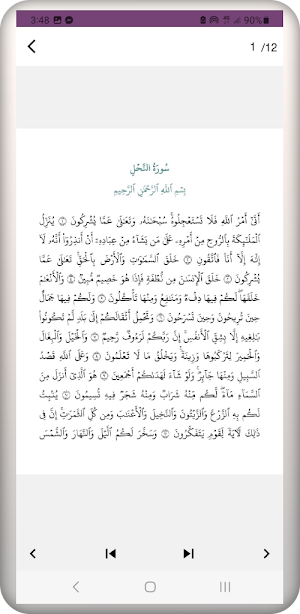 3:48
90%
1 /12
سُورَةُ النَّحْلِ
بِسْمِ اللَّهِ الرَّحْمَٰنِ الرَّحِيمِ
أَتَىٰٓ أَمْرُ اللَّهِ فَلَا تَسْتَعْجِلُوهُ ۚ سُبْحَٰنَهُۥ وَتَعَٰلَىٰ عَمَّا يُشْرِكُونَ ۝ يُنَزِّلُ
الْمَلَٰٓئِكَةَ بِالرُّوحِ مِنْ أَمْرِهِۦ عَلَىٰ مَن يَشَآءُ مِنْ عِبَادِهِۦٓ أَنْ أَنذِرُوٓا۟ أَنَّهُۥ لَآ
إِلَٰهَ إِلَّآ أَنَا۠ فَاتَّقُونِ ۝ خَلَقَ السَّمَٰوَٰتِ وَالْأَرْضَ بِالْحَقِّ ۚ تَعَٰلَىٰ عَمَّا
يُشْرِكُونَ ۝ خَلَقَ الْإِنسَٰنَ مِن نُّطْفَةٍ فَإِذَا هُوَ خَصِيمٌ مُّبِينٌ ۝ وَالْأَنْعَٰمَ
خَلَقَهَا ۗ لَكُمْ فِيهَا دِفْءٌ وَمَنَٰفِعُ وَمِنْهَا تَأْكُلُونَ ۝ وَلَكُمْ فِيهَا جَمَالٌ
حِينَ تُرِيحُونَ وَحِينَ تَسْرَحُونَ ۝ وَتَحْمِلُ أَثْقَالَكُمْ إِلَىٰ بَلَدٍ لَّمْ تَكُونُوا۟
بَٰلِغِيهِ إِلَّا بِشِقِّ الْأَنفُسِ ۚ إِنَّ رَبَّكُمْ لَرَءُوفٌ رَّحِيمٌ ۝ وَالْخَيْلَ وَالْبِغَالَ
وَالْحَمِيرَ لِتَرْكَبُوهَا وَزِينَةً ۚ وَيَخْلُقُ مَا لَا تَعْلَمُونَ ۝ وَعَلَى اللَّهِ قَصْدُ
السَّبِيلِ وَمِنْهَا جَآئِرٌ ۚ وَلَوْ شَآءَ لَهَدَىٰكُمْ أَجْمَعِينَ ۝ هُوَ الَّذِىٓ أَنزَلَ مِنَ
السَّمَآءِ مَآءً ۖ لَّكُم مِّنْهُ شَرَابٌ وَمِنْهُ شَجَرٌ فِيهِ تُسِيمُونَ ۝ يُنۢبِتُ
لَكُم بِهِ الزَّرْعَ وَالزَّيْتُونَ وَالنَّخِيلَ وَالْأَعْنَٰبَ وَمِن كُلِّ الثَّمَرَٰتِ ۗ إِنَّ فِى
ذَٰلِكَ لَءَايَةً لِّقَوْمٍ يَتَفَكَّرُونَ ۝ وَسَخَّرَ لَكُمُ الَّيْلَ وَالنَّهَارَ وَالشَّمْسَ